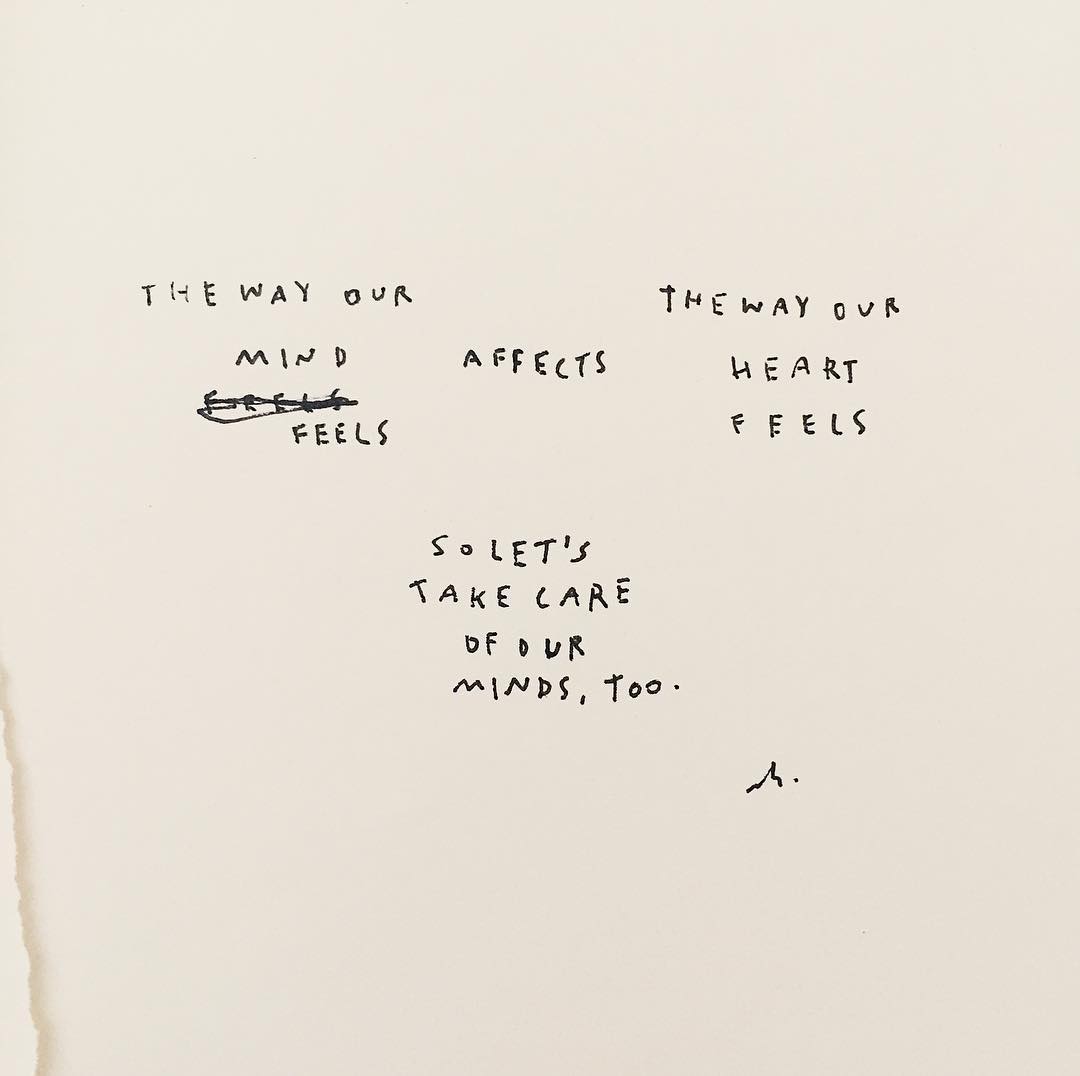 THE WAY OUR
MIND
FEELS
AFFECTS
THE WAY OUR
HEART
FEELS
SO LET'S
TAKE CARE
OF OUR
MINDS, TOO.
h.